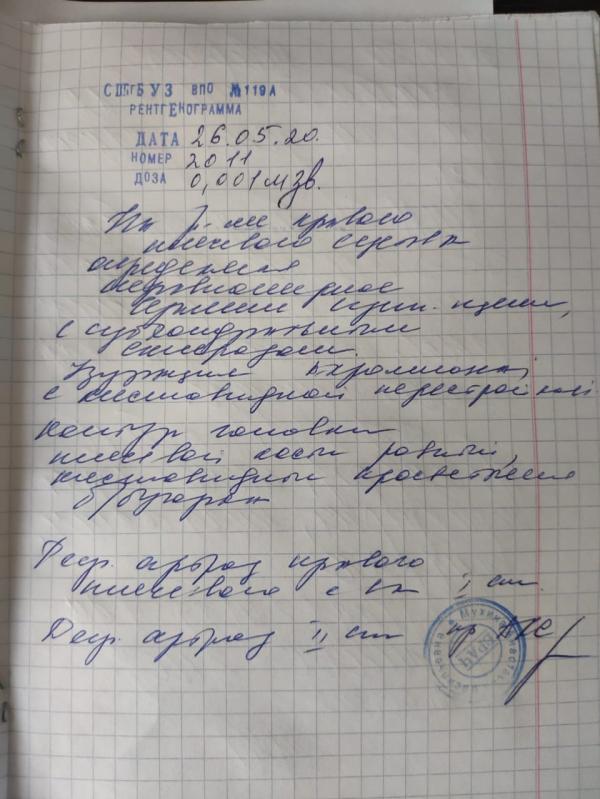 СПБГБУЗ ВПО №119А
РЕНТГЕНОГРАММА
ДАТА 26.05.20.
НОМЕР 2011
ДОЗА 0,001 мзв.
На правого
плечевого сустава
определяется
неравномерное
сужение сустав. щели,
с субхондральным
склерозом.
акромиона
с кистовидной перестройкой.
Контур головки
плечевой кости ровный,
кистовидные просветления
б/бугорка
Деф. артроз правого
плечевого с-ва I ст.
Деф. артроз II ст пр АКС
ВРАЧ